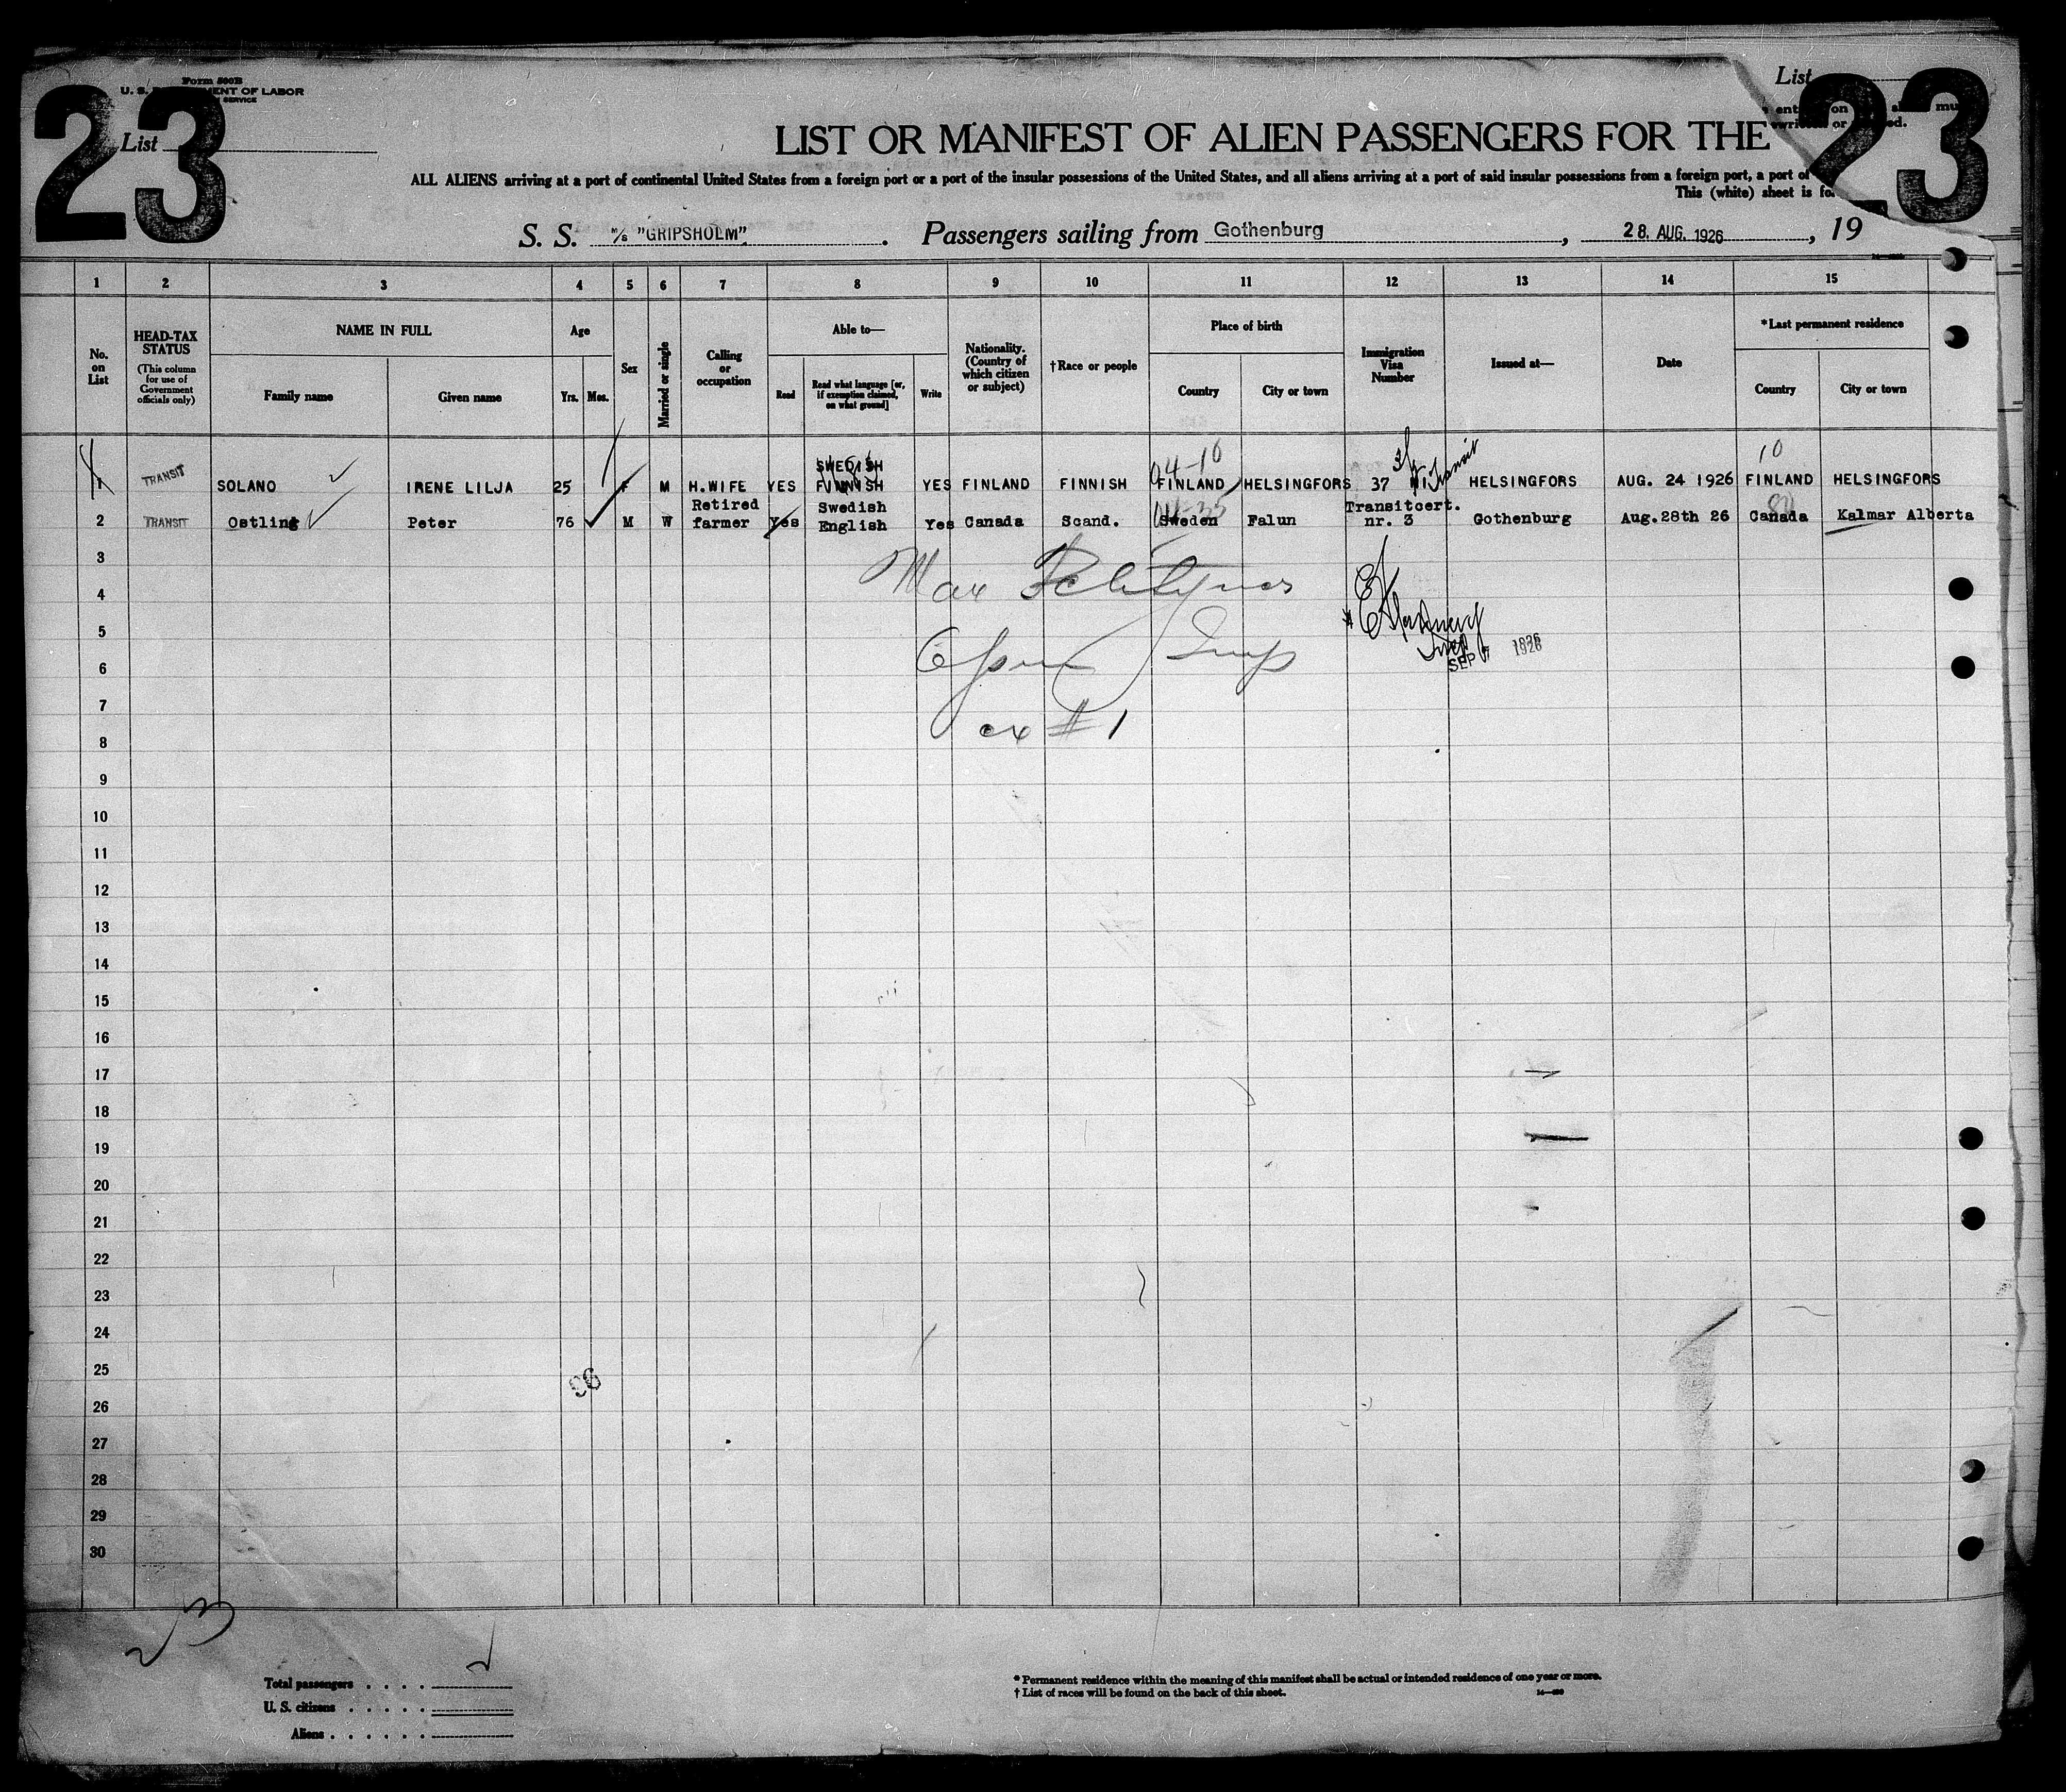 23
Form 500B
U. S. DEPARTMENT OF LABOR
SERVICE
List
List
23
LIST OR MANIFEST OF ALIEN PASSENGERS FOR THE
ALL ALIENS arriving at a port of continental United States from a foreign port or a port of the insular possessions of the United States, and all aliens arriving at a port of said insular possessions from a foreign port, a port of
This (white) sheet is for
S. S. M/S "GRIPSHOLM". Passengers sailing from Gothenburg, 28. AUG. 1926, 19
1 2 3 4 5 6 7 8 9 10 11 12 13 14 15
No. on List
HEAD-TAX STATUS
(This column for use of Government officials only)
NAME IN FULL
Family name Given name
Age
Yrs. Mos.
Sex
Married or single
Calling or occupation
Able to—
Read Read what language [or, if exemption claimed, on what ground] Write
Nationality. (Country of which citizen or subject)
†Race or people
Place of birth
Country City or town
Immigration Visa Number
Issued at—
Date
*Last permanent residence
Country City or town
04-10 10
1 TRANSIT SOLANO IRENE LILJA 25 F M H.WIFE YES SWEDISH FINNISH YES FINLAND FINNISH FINLAND HELSINGFORS 37 Transit HELSINGFORS AUG. 24 1926 FINLAND HELSINGFORS
2 TRANSIT Ostling Peter 76 M W Retired farmer Yes Swedish English Yes Canada Scand. Sweden Falun Transitcert. nr. 3 Gothenburg Aug.28th 26 Canada Kalmar Alberta
3
4
5
SEP 1926
6
7
ex #1
8
9
10
11
12
13
14
15
16
17
18
19
20
21
22
23
24
25
96
26
27
28
29
30
23
Total passengers
U. S. citizens
Aliens
* Permanent residence within the meaning of this manifest shall be actual or intended residence of one year or more.
† List of races will be found on the back of this sheet.